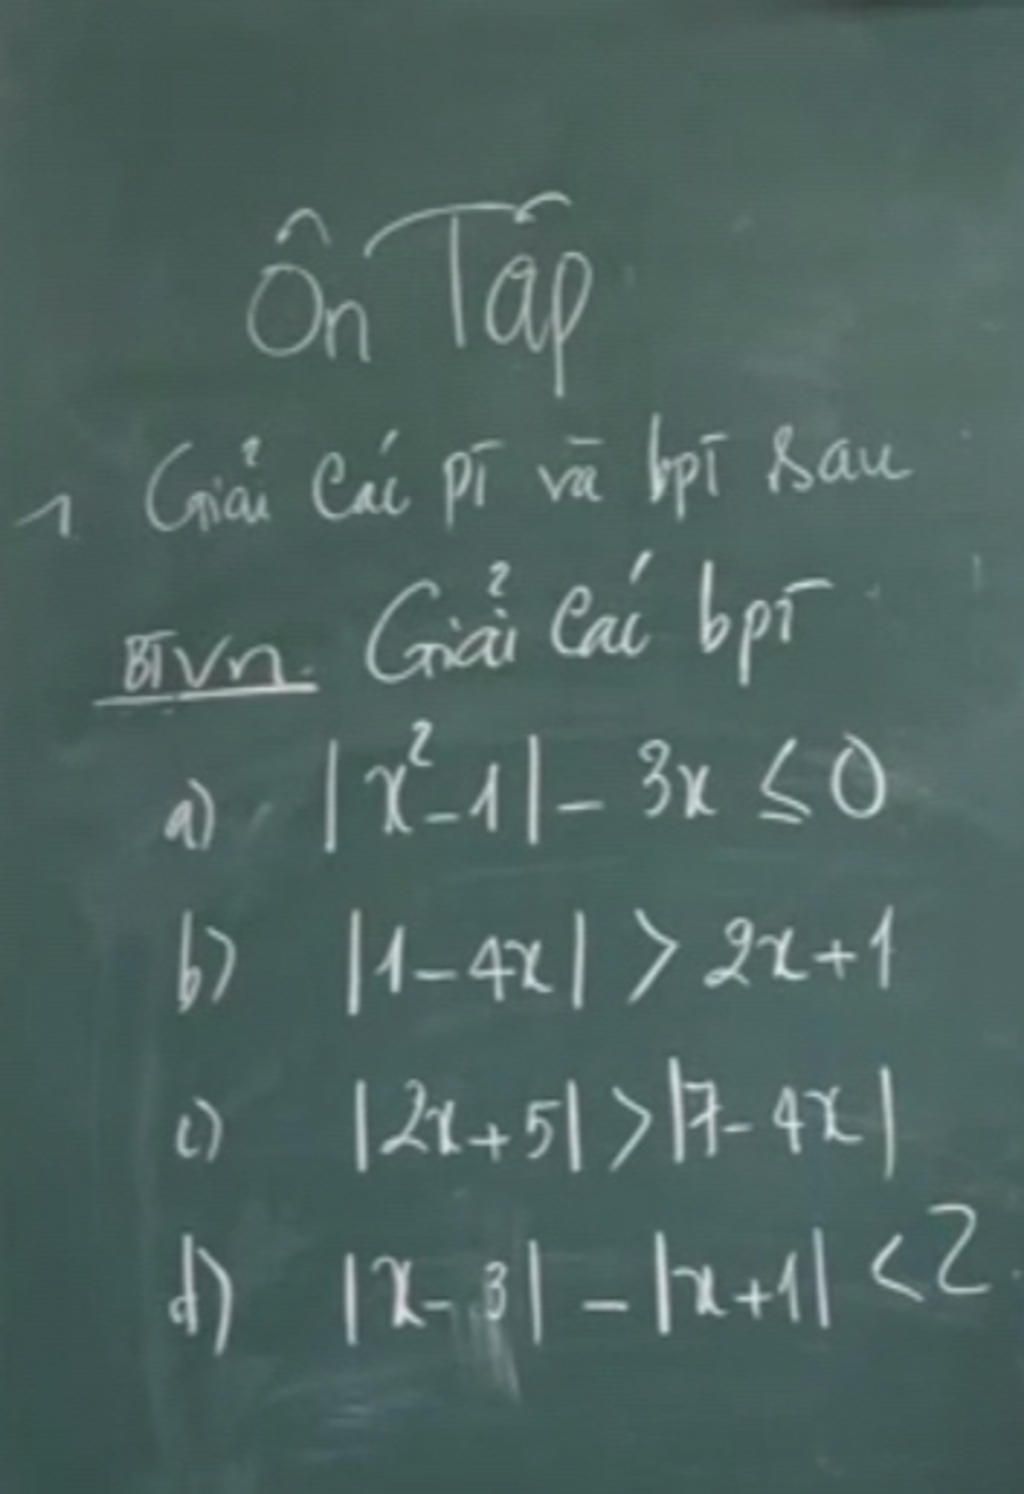 Ôn Tấp
1. Giải các pT và bpT sau
BTVn. Giải các bpT
a) |x²-1| - 3x ≤ 0
b) |1-4x| > 2x+1
c) |2x+5| > |7-4x|
d) |x-3| - |x+1| < 2.